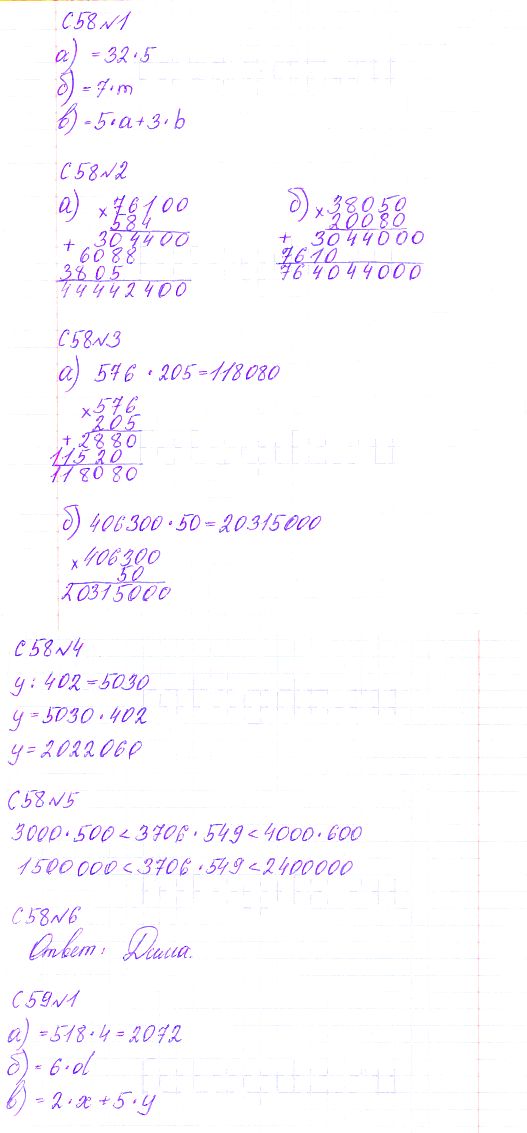 С58№1
а) =32·5
б) =7·m
в) =5·a+3·b
С58№2
а) ×76100
584
+ 304400
6088
3805
44442400
б) ×38050
20080
+ 3044000
7610
764044000
С58№3
а) 576 · 205=118080
×576
205
+2880
11520
118080
б) 406300·50=20315000
×406300
50
20315000
С58№4
y: 402=5030
y=5030·402
y=2022060
С58№5
3000·500<3706·549<4000·600
1500000<3706·549<2400000
С58№6
Ответ: Дима.
С59№1
а) =518·4=2072
б) =6·d
в) =2·x+5·y